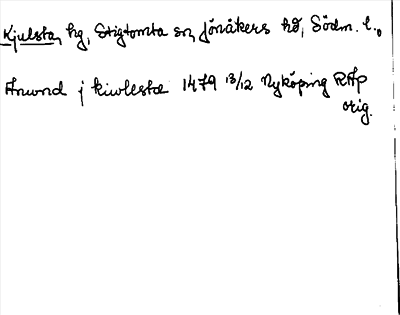 Kjulsta, hg, Stigtomta sn, Jönåkers hd, Södm. l.
Anund j kiwlesta 1479 13/12 Nyköping RAp
orig.